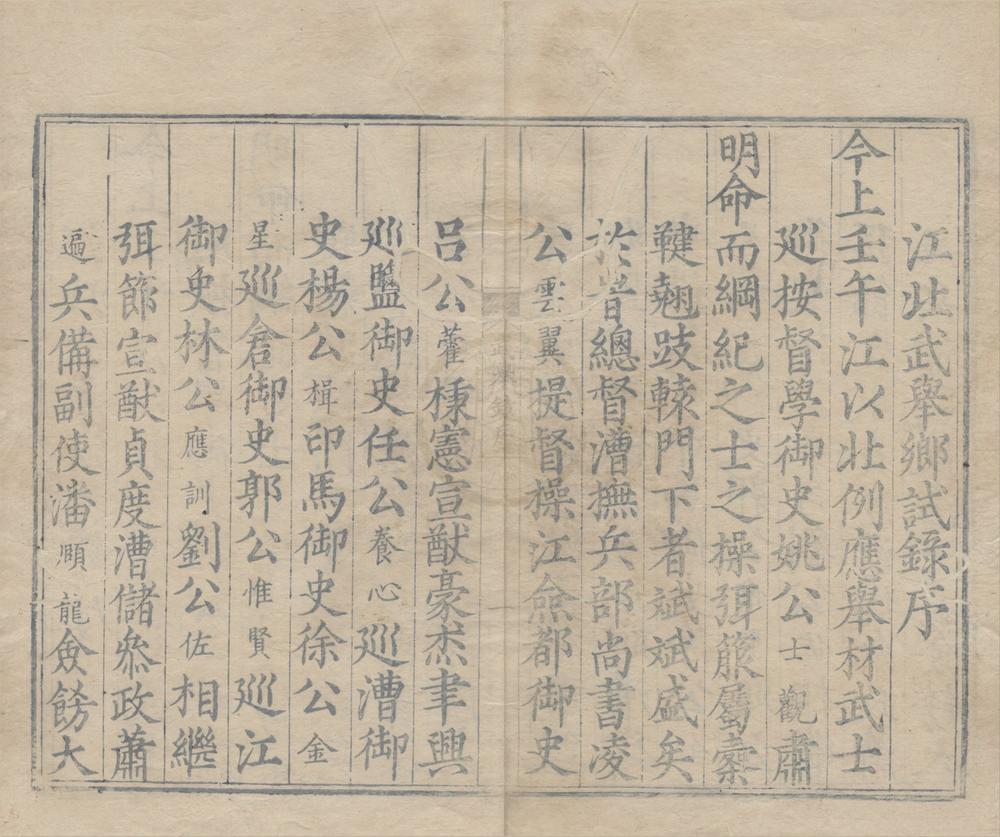 江北武舉鄉試錄序
今上壬午江以北例應舉材武士
巡按督學御史姚公士觀肅
明命而綱紀之士之操弭箙屬櫜
鞬翹跂轅門下者斌斌盛矣
於旹總督漕撫兵部尚書凌
公雲翼提督操江僉都御史
呂公藿秉憲宣猷豪杰聿興
巡鹽御史任公養心巡漕御
史楊公楫印馬御史徐公金
星巡倉御史郭公惟賢巡江
御史林公應訓劉公佐相繼
弭節宣猷貞度漕儲叅政蕭
遍兵備副使潘頤龍僉飭大